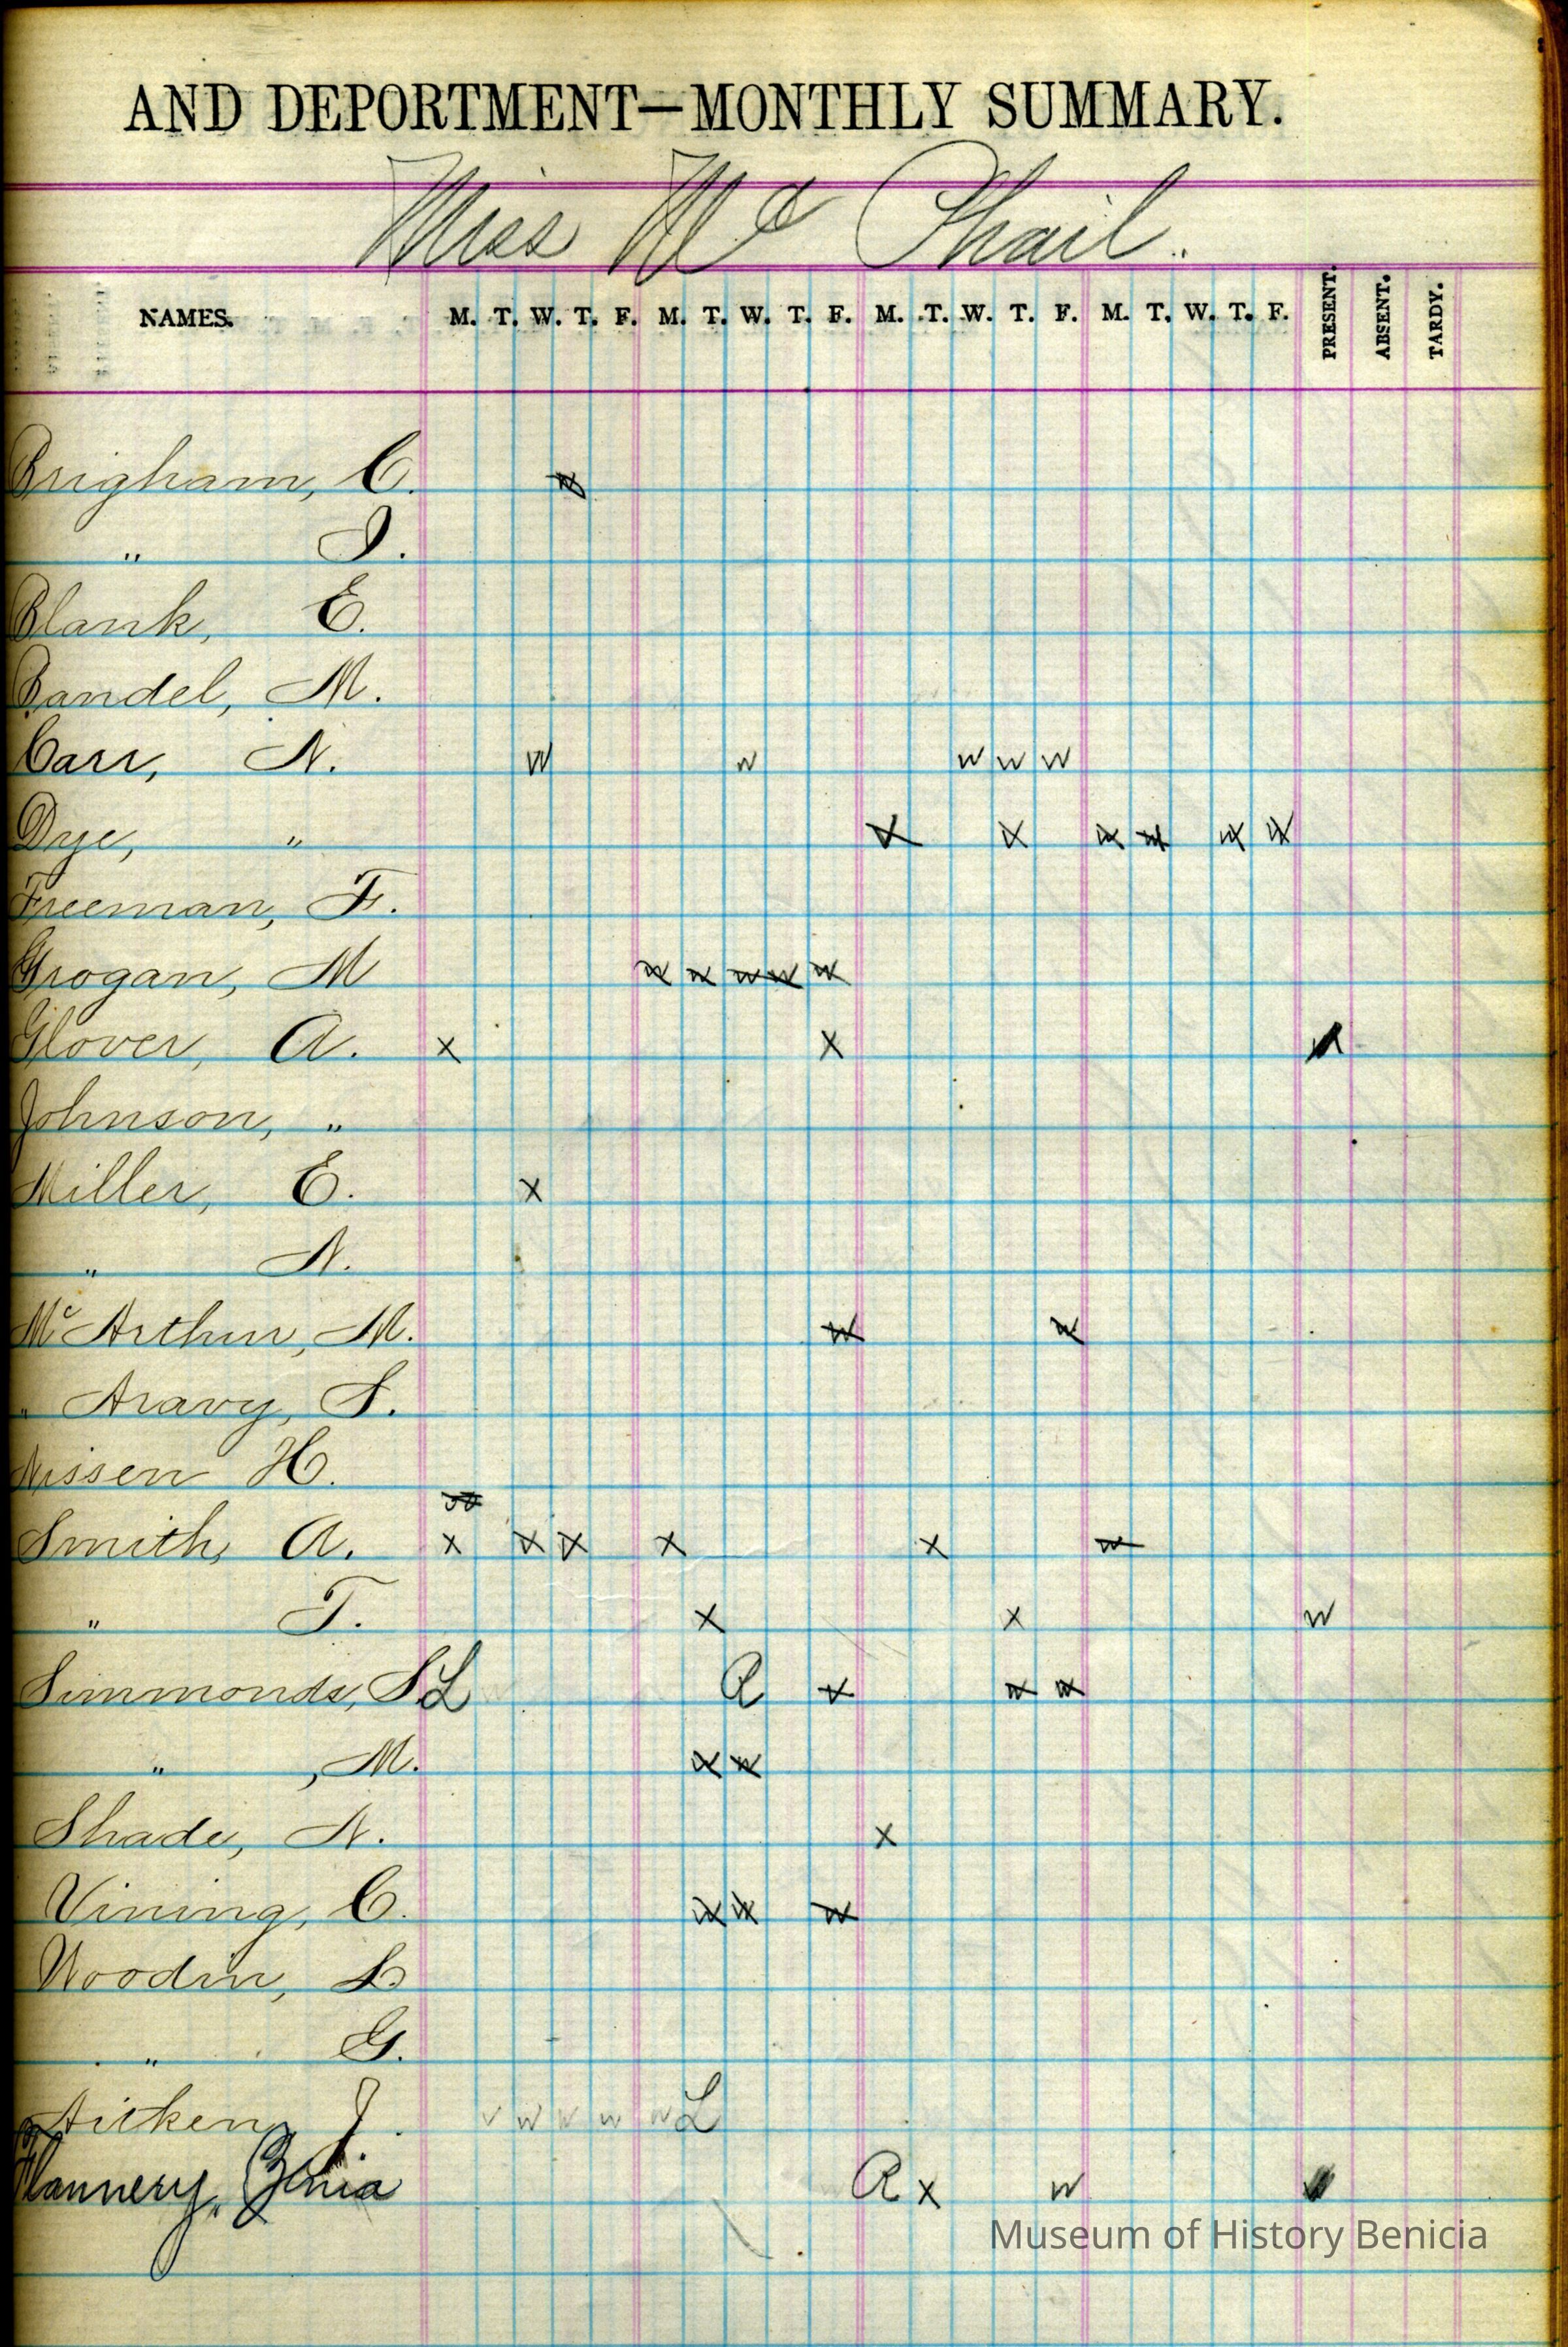 AND DEPORTMENT—MONTHLY SUMMARY.
Miss Mc Phail.
NAMES. M. T. W. T. F. M. T. W. T. F. M. T. W. T. F. M. T. W. T. F. PRESENT. ABSENT. TARDY.
Brigham, C. w
" I.
Blank, E.
Bandel, M.
Carr, N. w w w w w
Dye, " x x w w w w
Freeman, F.
Grogan, M w w w w w
Glover, A. x x
Johnson, "
Miller, E. x
" N.
Mc Arthur, M. w w
" Aravy, S.
Nissen H.
Smith, A. x x x x x w
" T. x x w
Simmonds, S. L R v w w
" , M. w w
Shade, N. x
Vining, C. w w w
Woodin, L
" G.
Aitken J. v w w w w L
Flannery, R x w
Museum of History Benicia